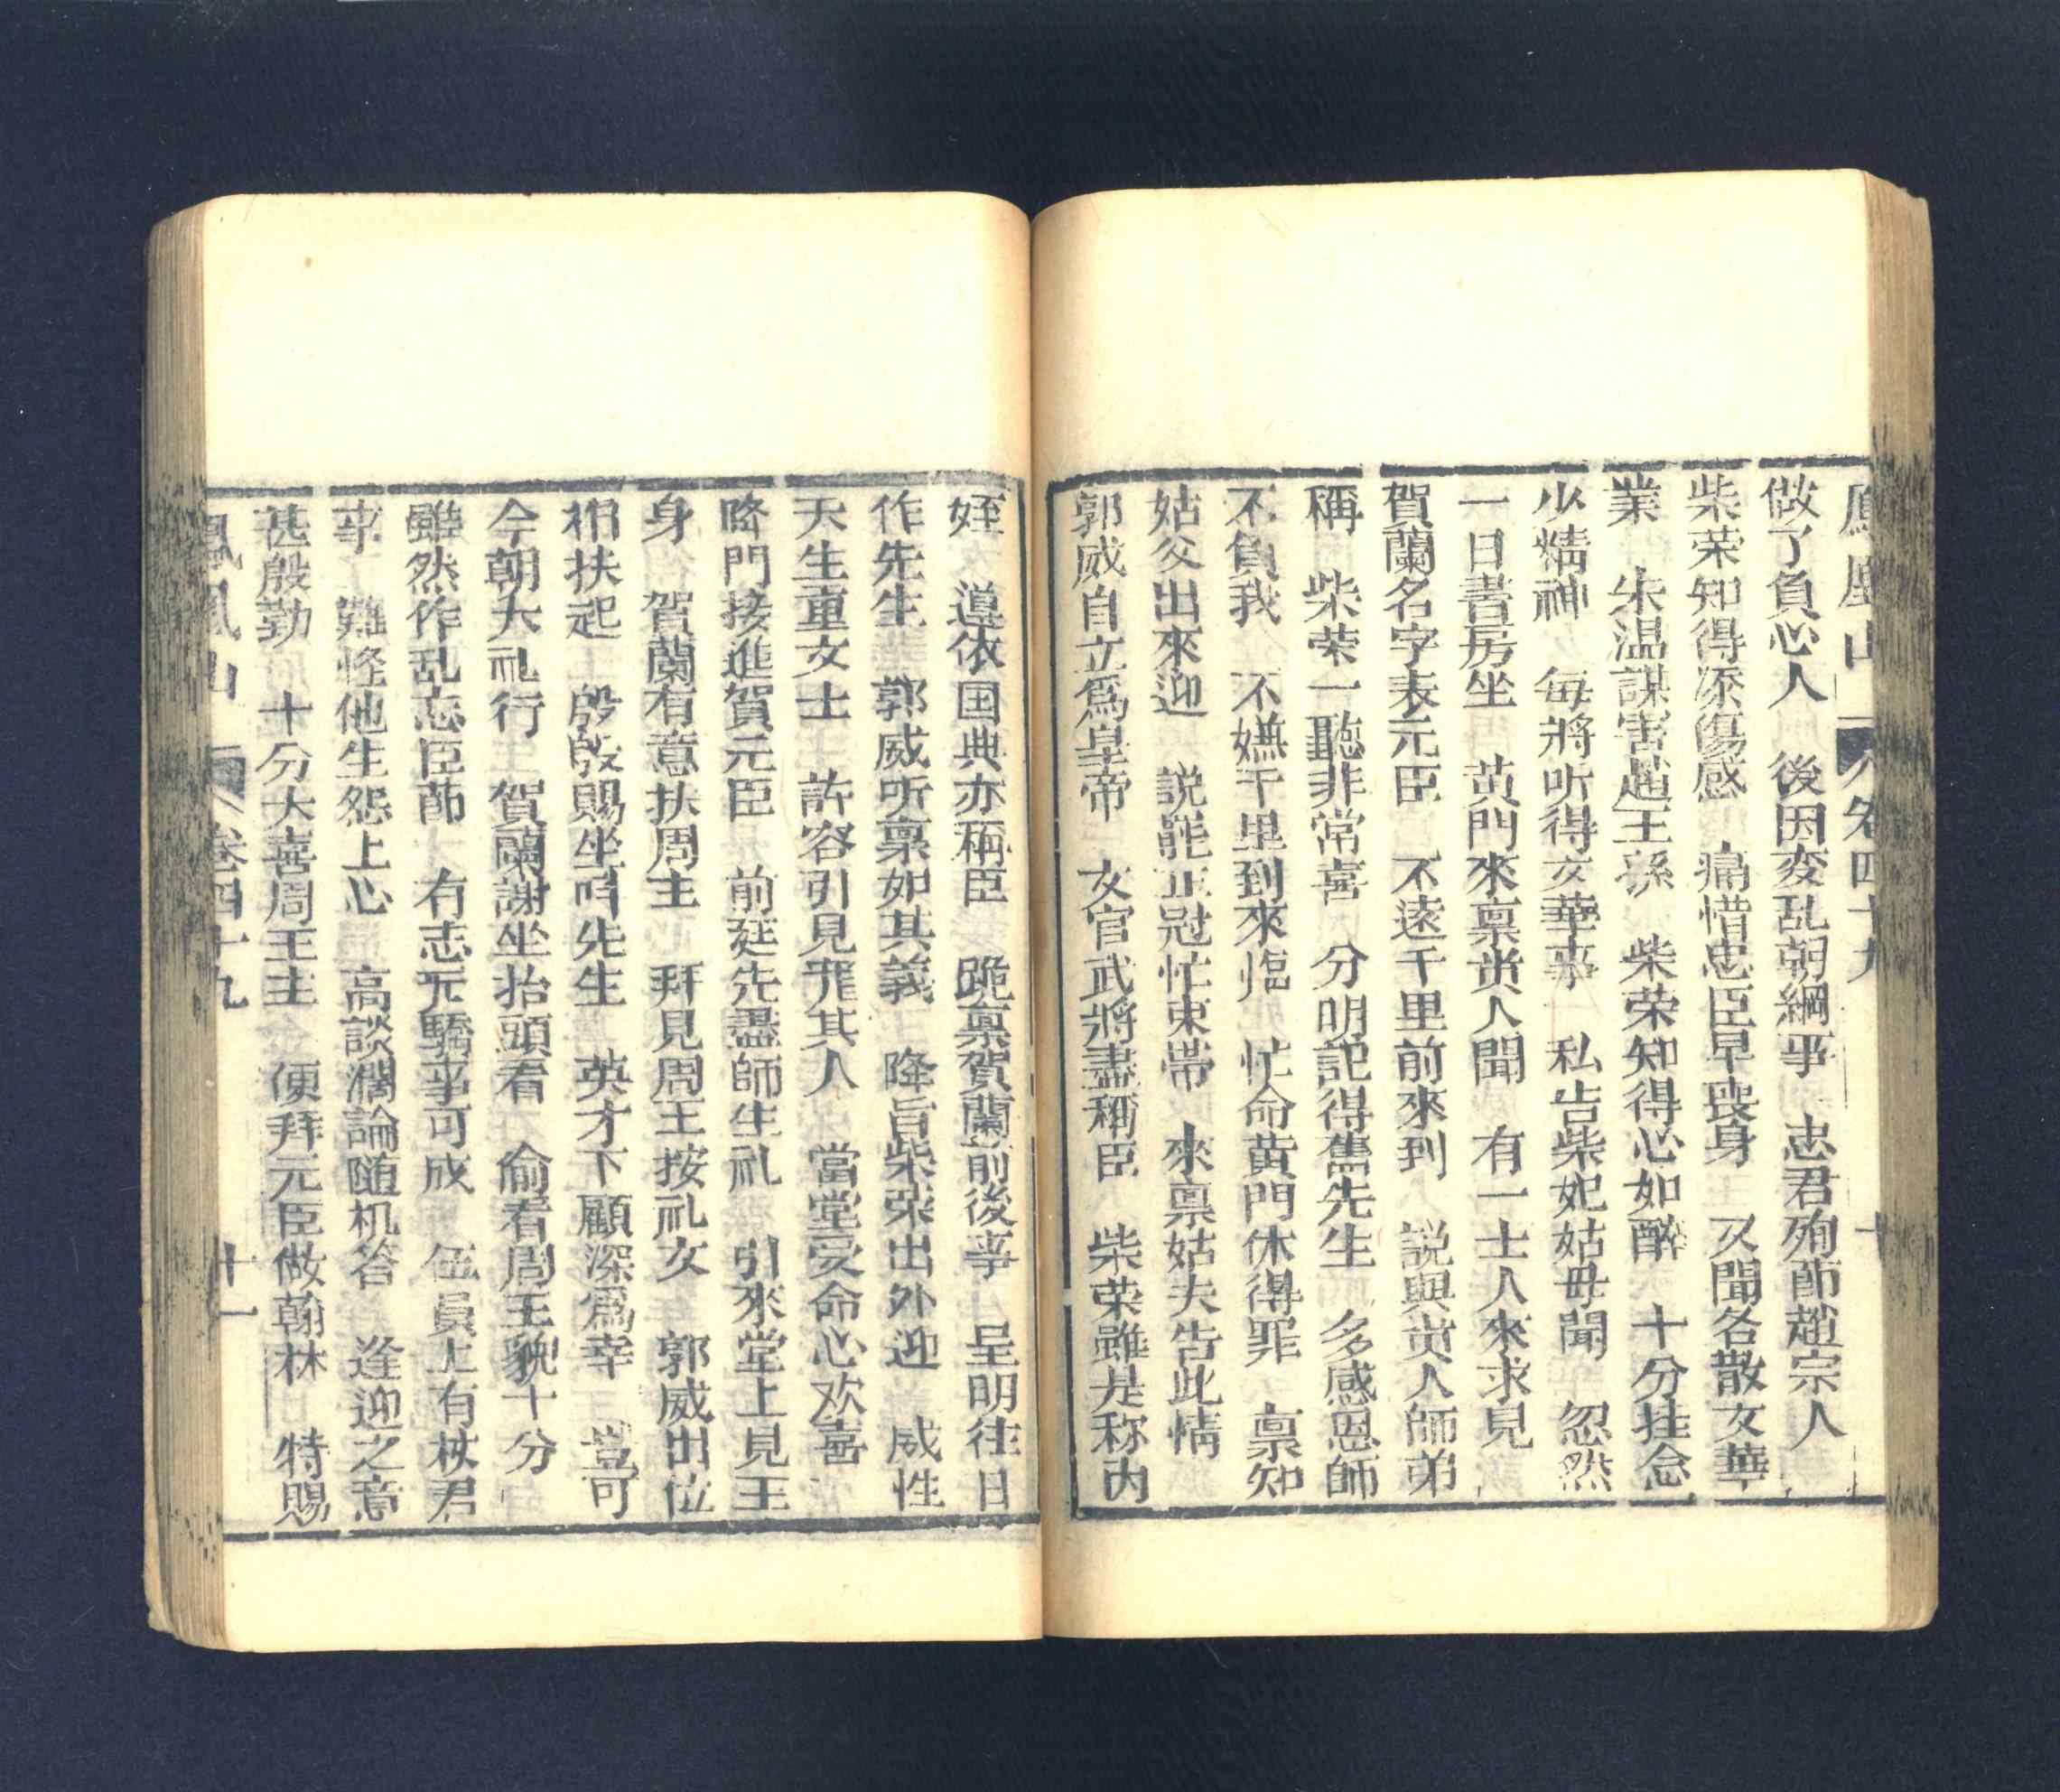 鳳凰山 卷四十九 十
做了負心人 後因変乱朝綱事 忠君殉節趙宗人
柴荣知得添傷感 痛惜忠臣早喪身 又聞各散文華
業 朱温謀害趙王孫 柴荣知得心如醉 十分挂念
少精神 每將听得文華事 私告柴妃姑母聞 忽然
一日書房坐 黄門來禀贵人聞 有一士人來求見
賀蘭名字表元臣 不遠千里前來到 説與贵人師弟
稱 柴荣一聽非常喜 分明記得舊先生 多感恩師
不負我 不嫌千里到來臨 忙命黄門休得罪 禀知
姑父出來迎 説罷正冠忙束帶 來禀姑夫告此情
郭威自立爲皇帝 女官武將盡稱臣 柴荣雖是称内
姪 遵依国典亦稱臣 跪禀賀蘭前後事 呈明往日
作先生 郭威听禀如其義 降旨柴荣出外迎 威性
天生重文士 許容引見罪其人 當堂受命心欢喜
降門接進賀元臣 前廷先盡師生礼 引來堂上見王
身 賀蘭有意扶周主 拜見周王按礼女 郭威出位
相扶起 殷殷賜坐呌先生 英才下顧深爲幸 豈可
今朝大礼行 賀蘭謝坐抬頭看 偷看周王貌十分
雖然作乱忘臣節 有志元驕事可成 伍員上有杖君
事 難怪他生怨上心 高談濶論随机答 逢迎之意
甚殷勤 十分大喜周王主 便拜元臣做翰林 特賜
鳳凰山 卷四十九 十一